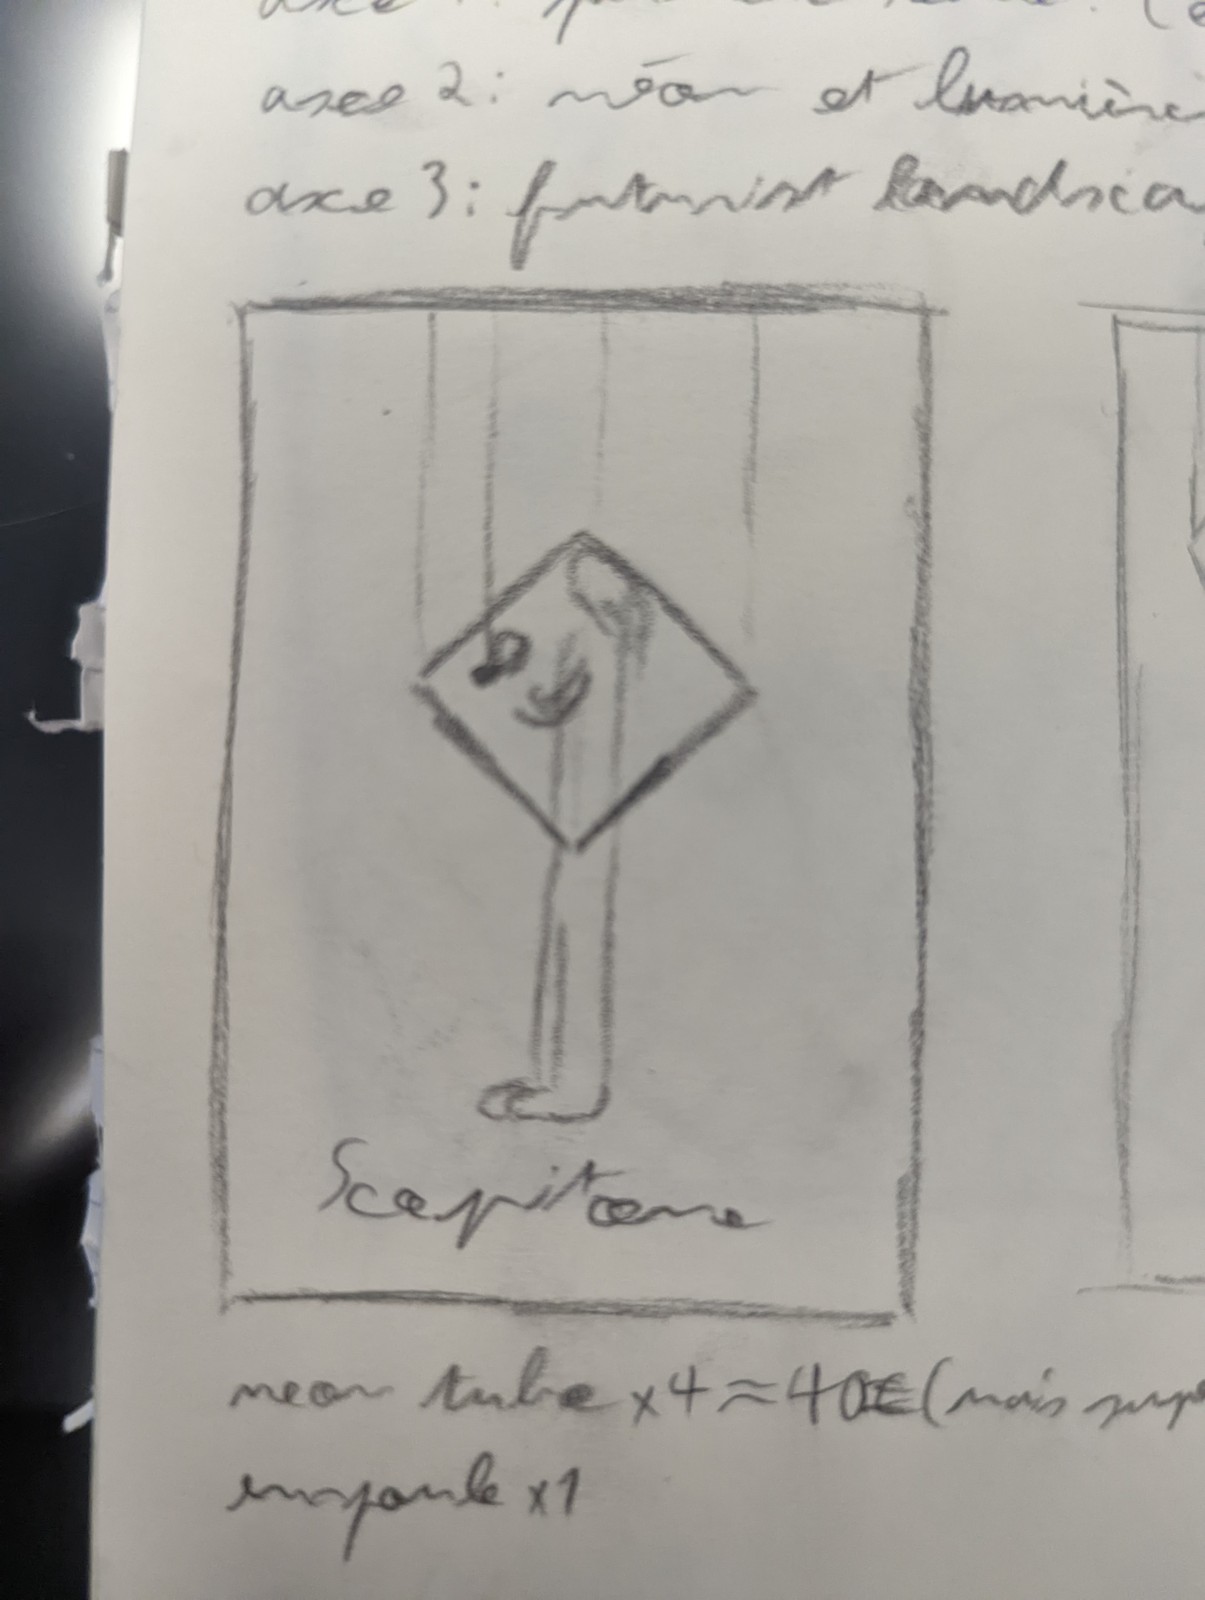 axe
axe 2: néon et lumière
axe 3: futurist landsca
Scapitane
neon tube x4 ≈ 40€ (mais
ampoule x1